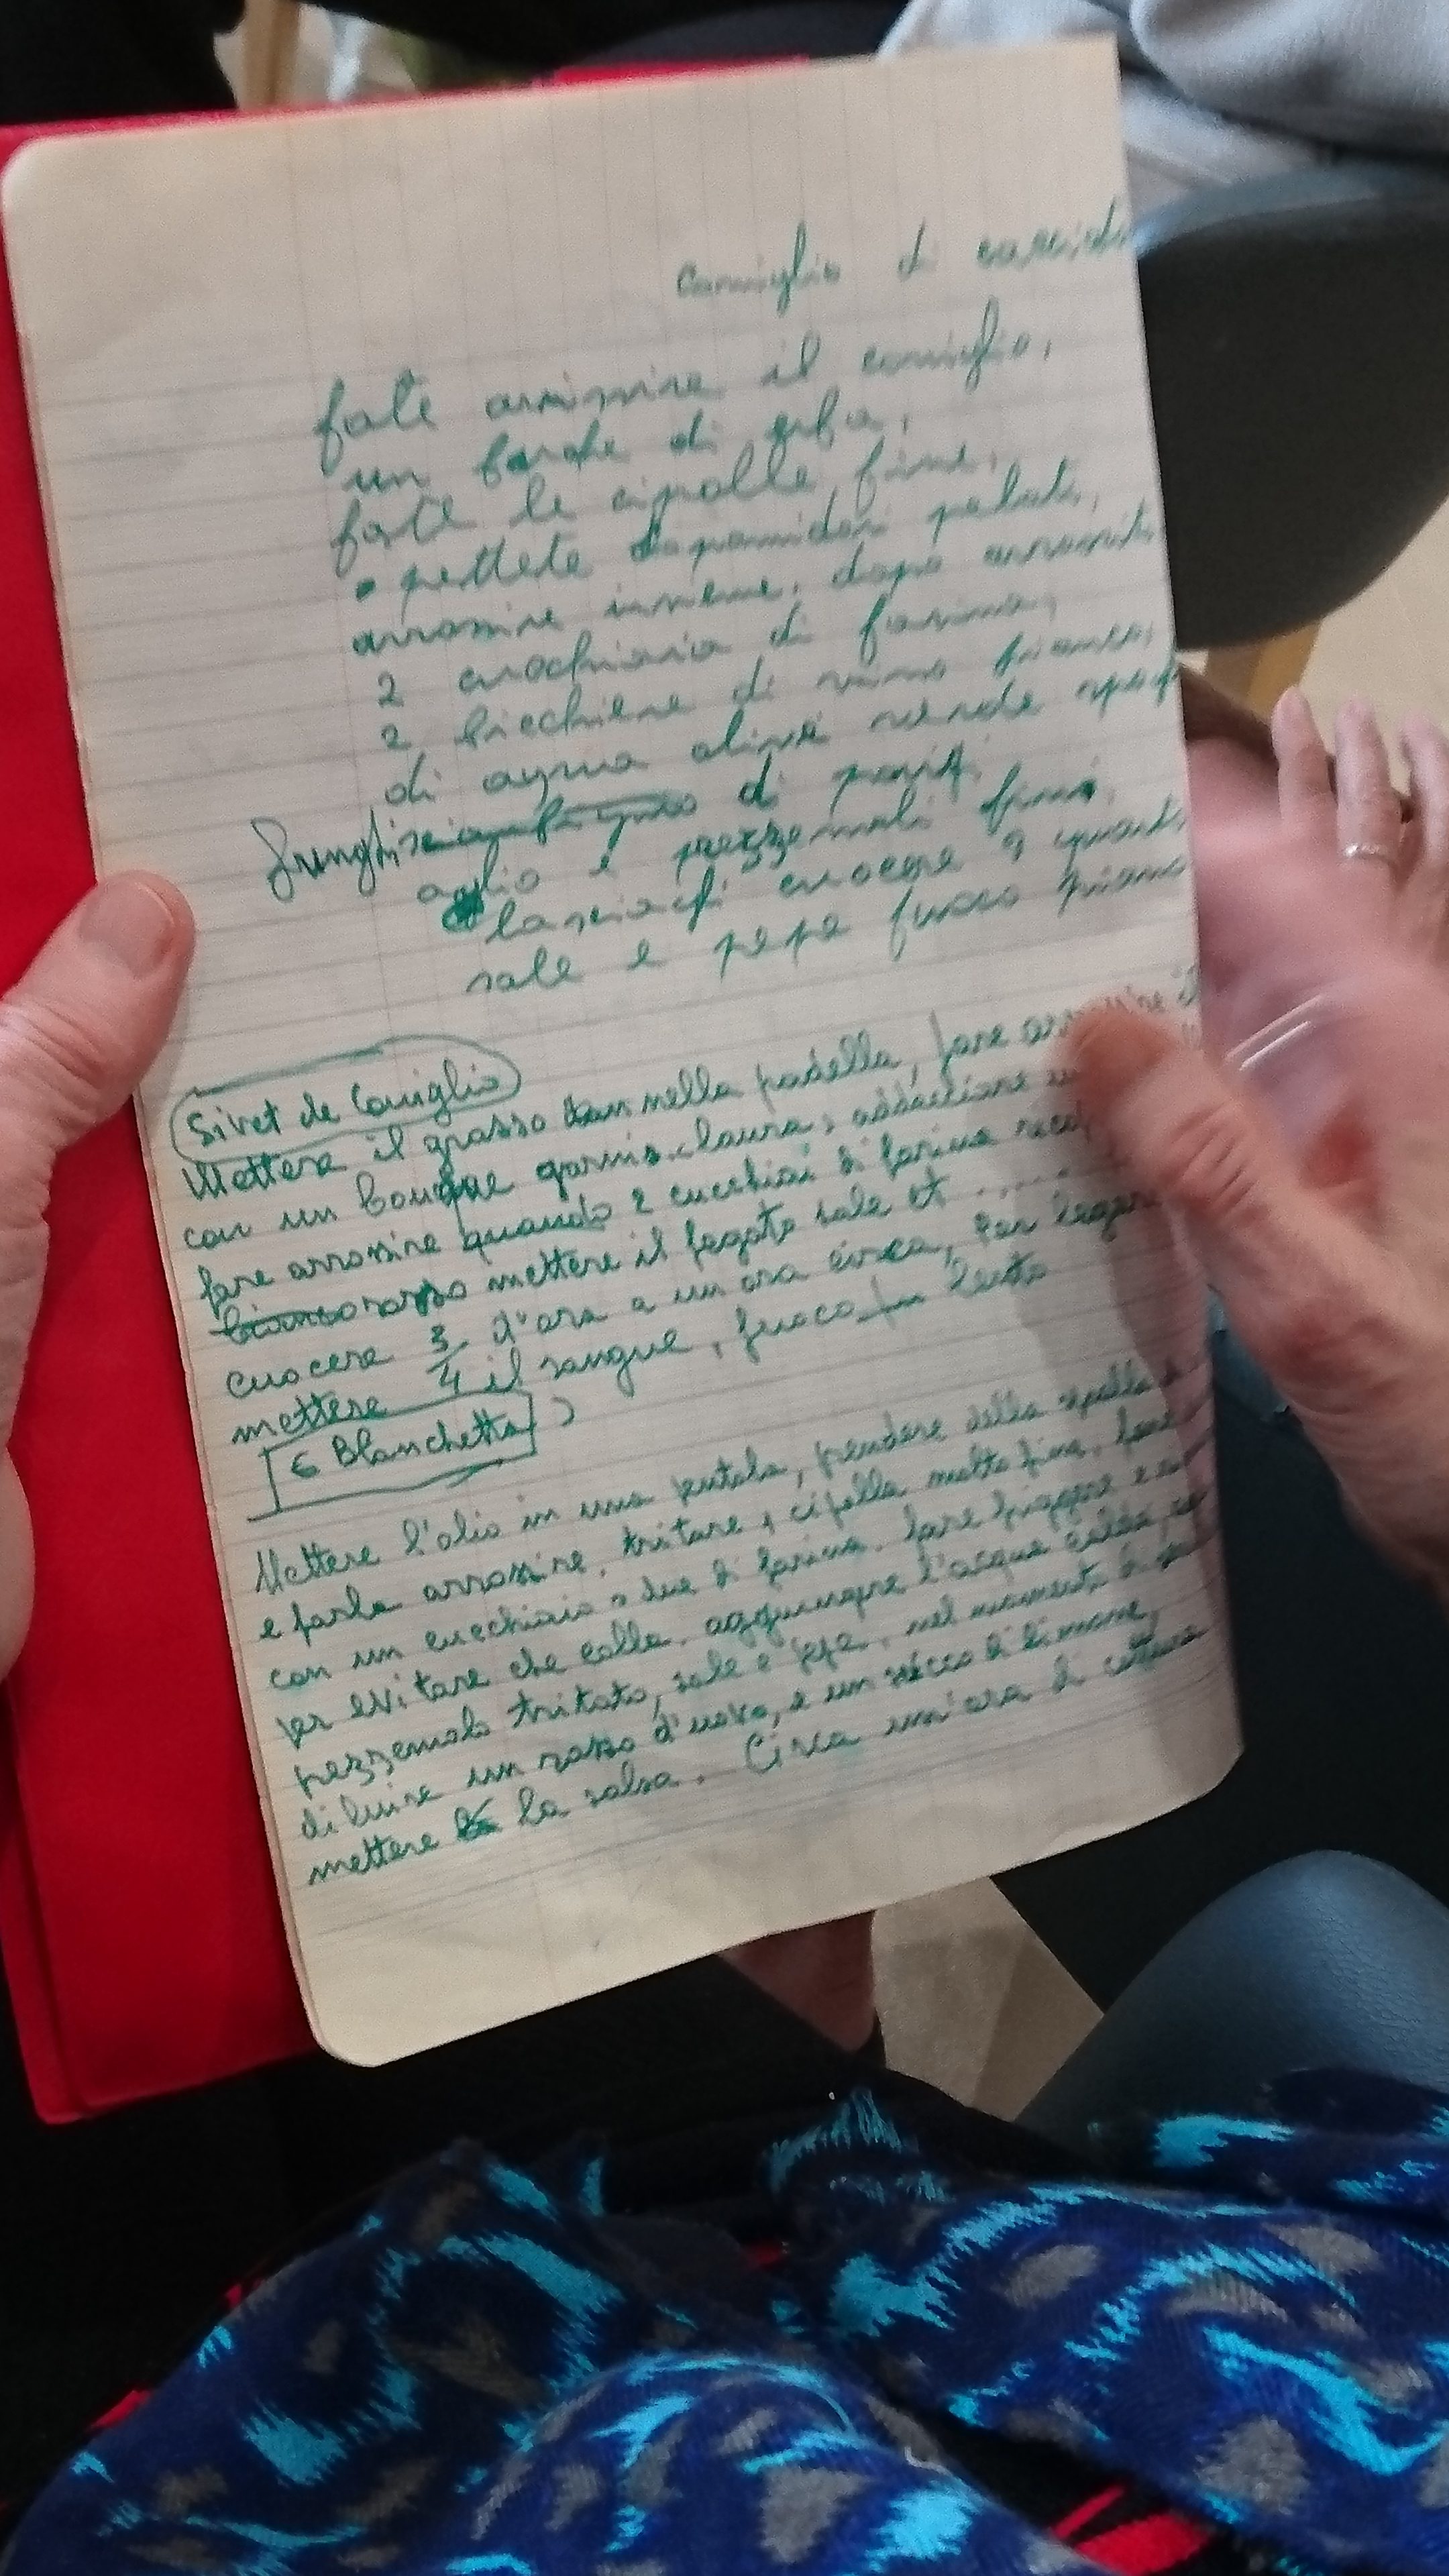 Coniglio di
fate arrosire il coniglio,
un di erba,
fate le cipolle fine,
mettete pomidori pelati,
arrosire insieme, dopo arrosito
2 cuochiaia di farina,
2 bicchiere di vino bianco,
di aqua olive verde
Funghi di
aglio e prezzemoli fini
lasciate cuocere 3 quarti
sale e pepe fuoco piano
Sivet de Coniglio
Mettere il grasso nella padella, fare
con un bouque garnis laura, addactione
fare arrosire quando 2 cucchiai di farina
bianco rosso mettere il fegato sale et .....
cuocere 3/4 d'ora a un ora circa, per
mettere il sangue, fuoco lento
Blanchetta
Mettere l'olio in una pentola, prendere della spalla
e farla arrosire, tritare 1 cipolla molto fine, fare
con un cucchiaio o due di farina, fare friggere
per evitare che colla, aggiungere l'acqua calda,
pezzemolo tritato, sale e pepe, nel momento di
diluire un rosso d'uovo, e un succo di limone,
mettere la salsa. Circa un'ora di cottura